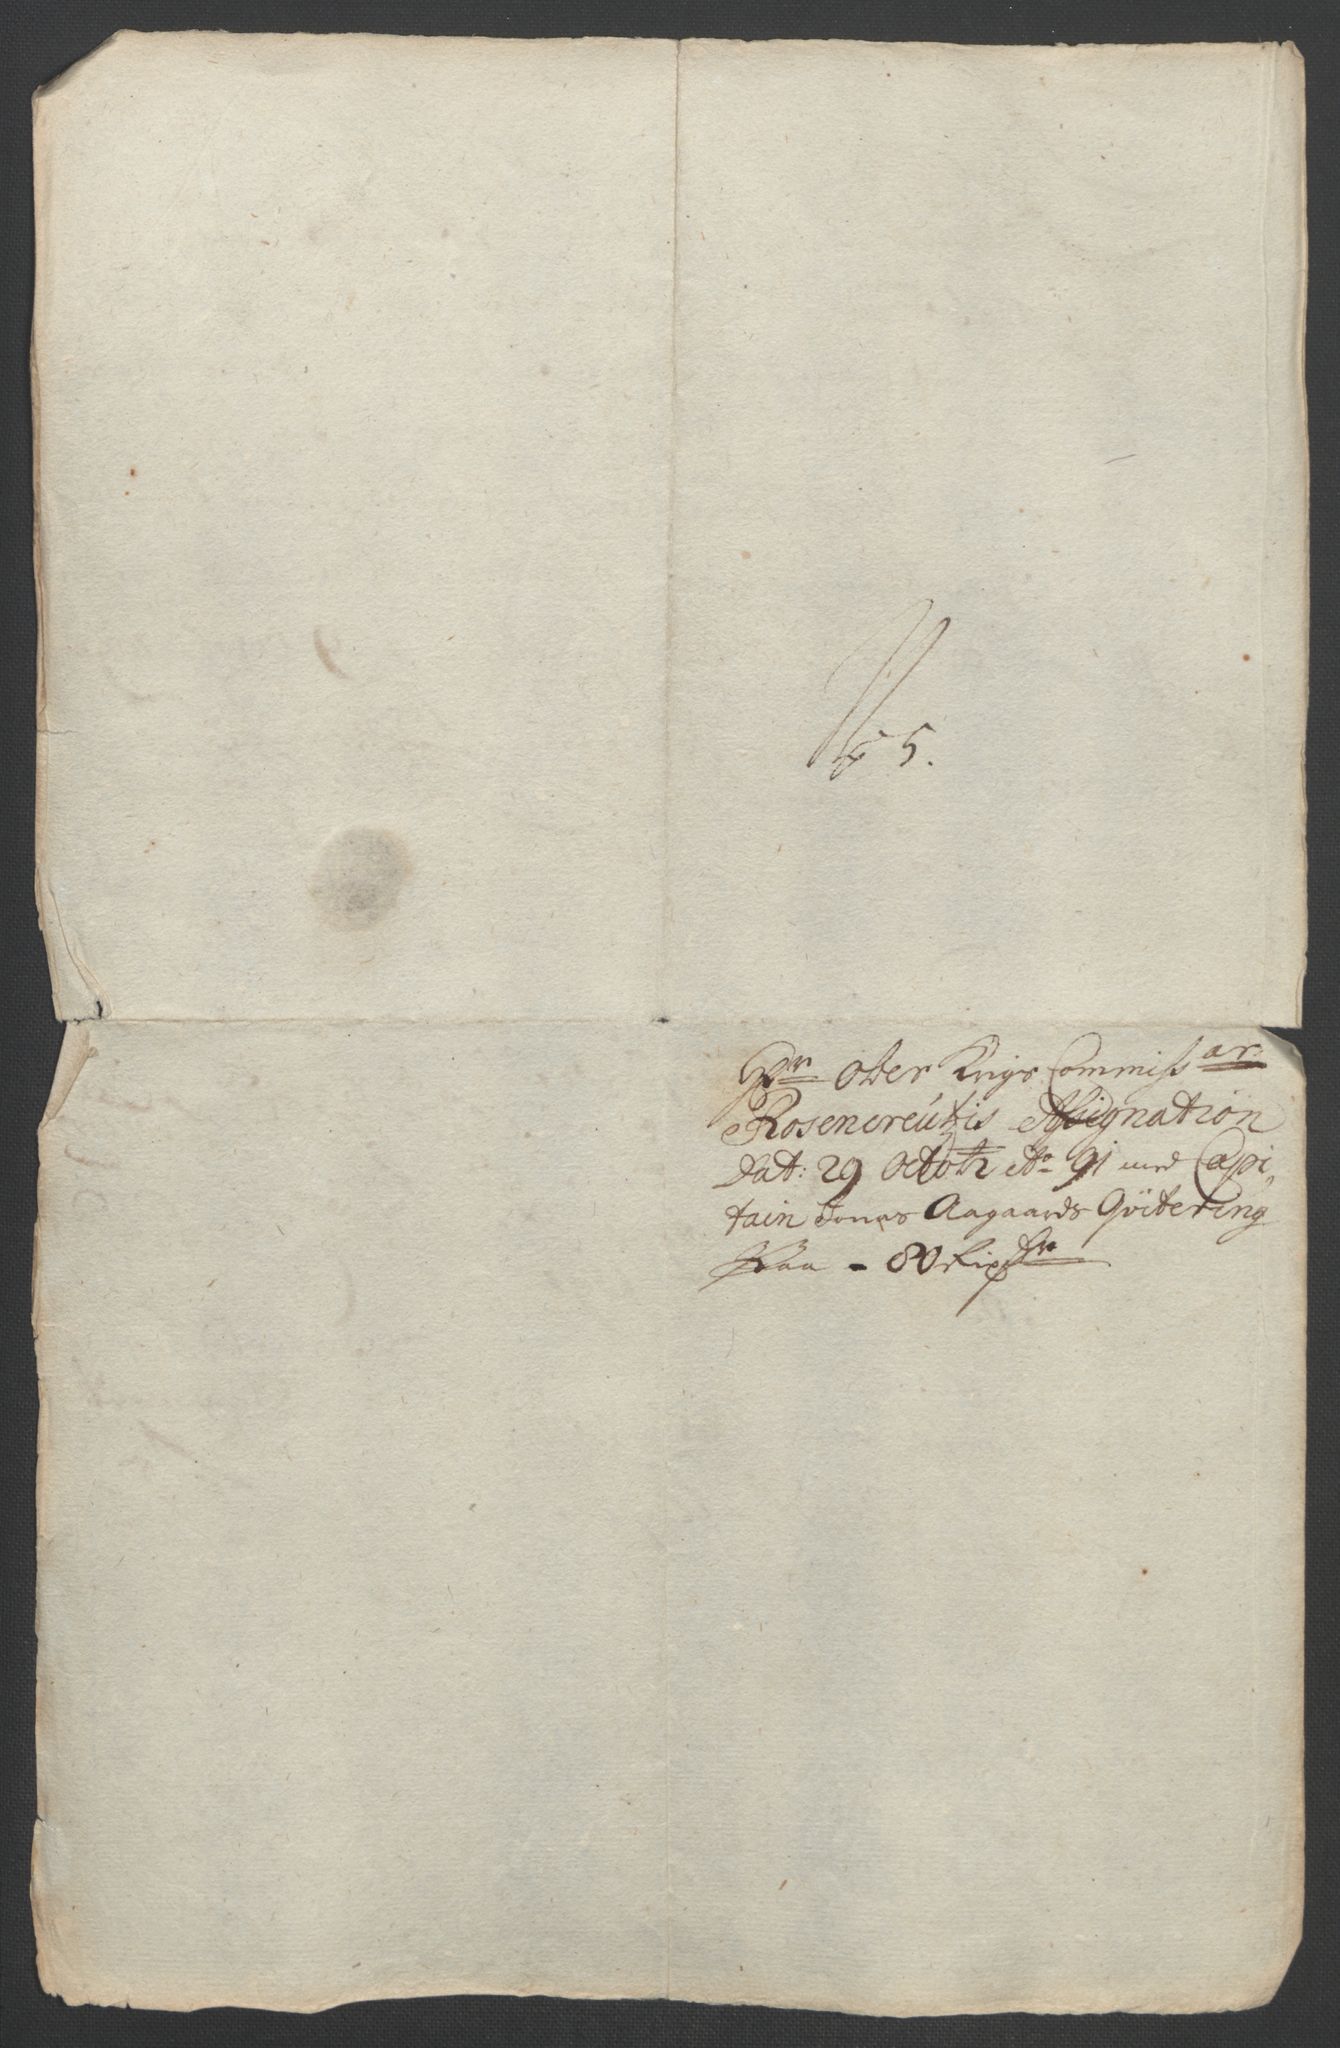 5.
Hr Ober Krigs Commissar
Rosencreützis Assignation
Dat: 29 Octobr Ao 91 med Capi,
tain Jonas Aagaards Qvitering
Paa - 80 Rixdr